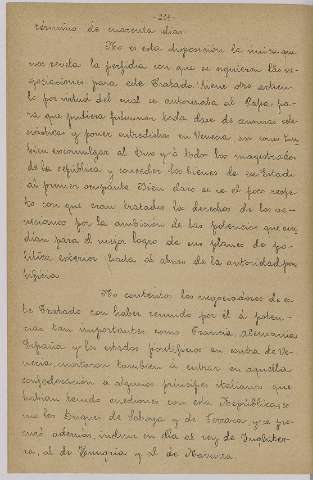 término de cuarenta dias.
No es esta disposición la única que
nos revela la perfidia con que se siguieron las ne-
gociaciones para este Tratado: tiene otro articu-
lo por virtud del cual se autorizaba al Papa, pa-
ra que pudiera fulminar toda clase de censuras ecle-
siásticas y poner entredichos en Venecia, asi como tam-
bien excomulgar al Dux y á todos los magistrados
de la república y conceder los bienes de su Estado
al primer ocupante. Bien claro se ve el poco respe-
to con que eran tratados los derechos de los ve-
necianos por la ambicion de las potencias que
para el mejor logro de sus planes de po-
litica exterior hasta al abuso de la autoridad pon-
tificia.
No contentos los negociadores de es-
te Tratado con haber reunido por él á poten-
cias tan importantes como Francia, Alemania
España y los estados pontificios en contra de Ve-
necia, invitaron tambien á entrar en aquella
confederacion á algunos principes italianos que
habian tenido cuestiones con esta República, co-
mo los Duques de Saboya y de Ferrara y se pro-
curó además incluir en ella al rey de Inglater-
ra, al de Hungria y al de Navarra.